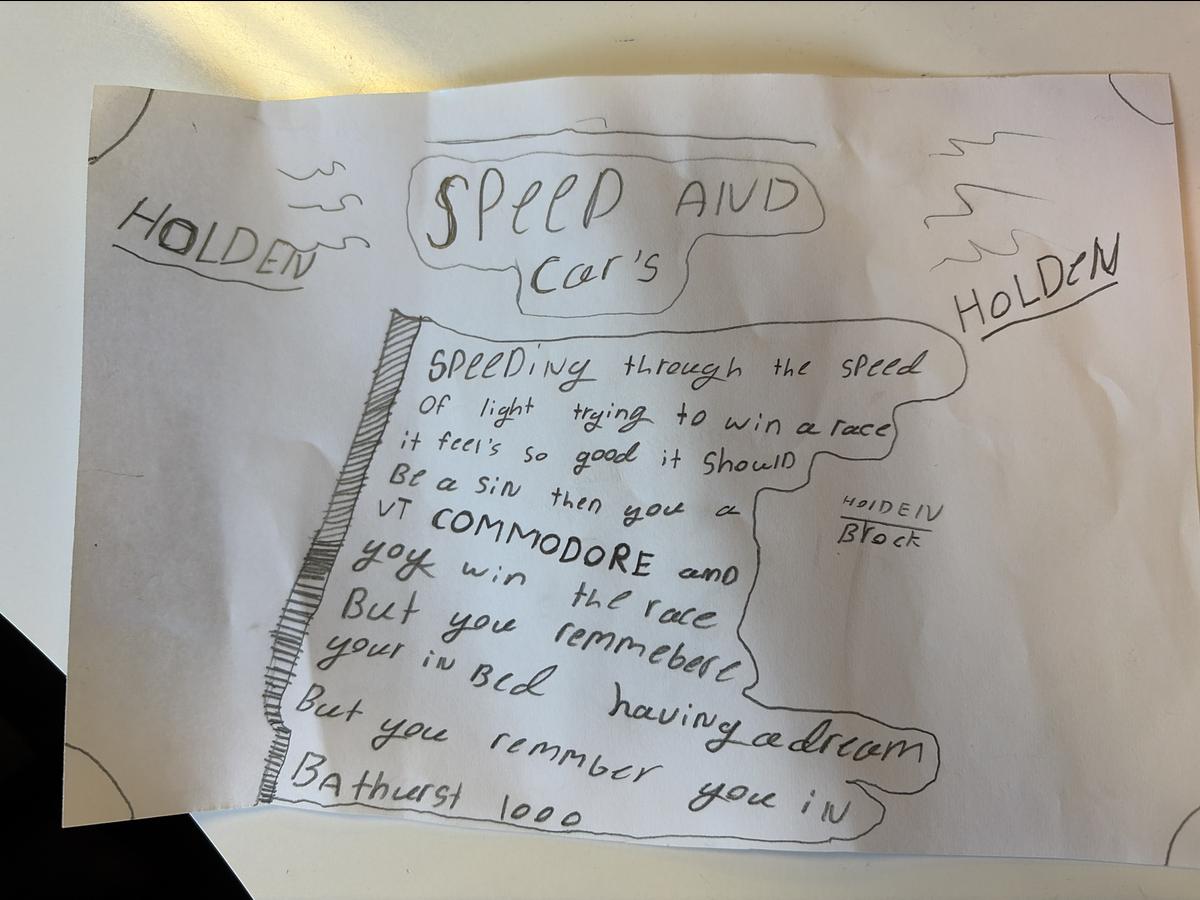 SPeeD AND
Car's
HOLDEN
HoLDeN
SPeeDiNg through the speed
Of light trying to win a race
it feel's so good it ShoulD
Be a SiN then you a
VT COMMODORE anD
you win the race
But you remmebere
your iN Bed having a dream
But you remmber you iN
BAthurst 1000
HOlDEN
Brock